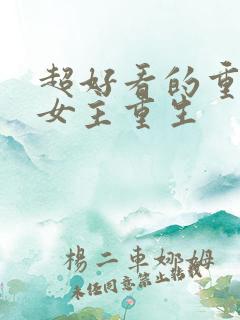 超好看的重
女主重生
楊二車娜姆
未经同意禁止转载